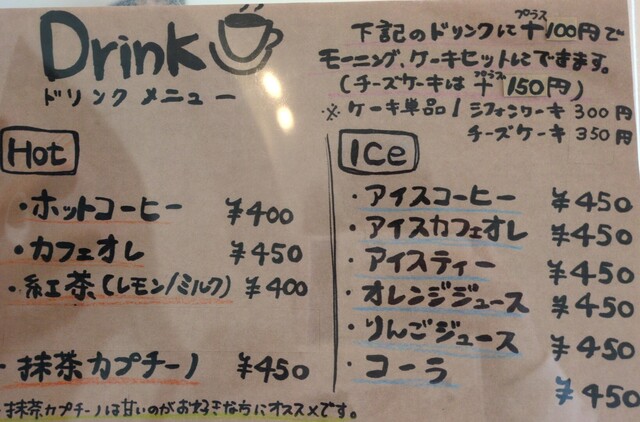 Drink
ドリンク メニュー
下記のドリンクに+プラス100円で
モーニング、ケーキセットにできます。
(チーズケーキは+プラス150円)
※ケーキ単品/シフォンケーキ 300円
チーズケーキ 350円
Hot
・ホットコーヒー ¥400
・カフェオレ ¥450
・紅茶(レモン/ミルク) ¥400
・抹茶カプチーノ ¥450
・抹茶カプチーノは甘いのがお好きな方にオススメです。
Ice
・アイスコーヒー ¥450
・アイスカフェオレ ¥450
・アイスティー ¥450
・オレンジジュース ¥450
・りんごジュース ¥450
・コーラ ¥450